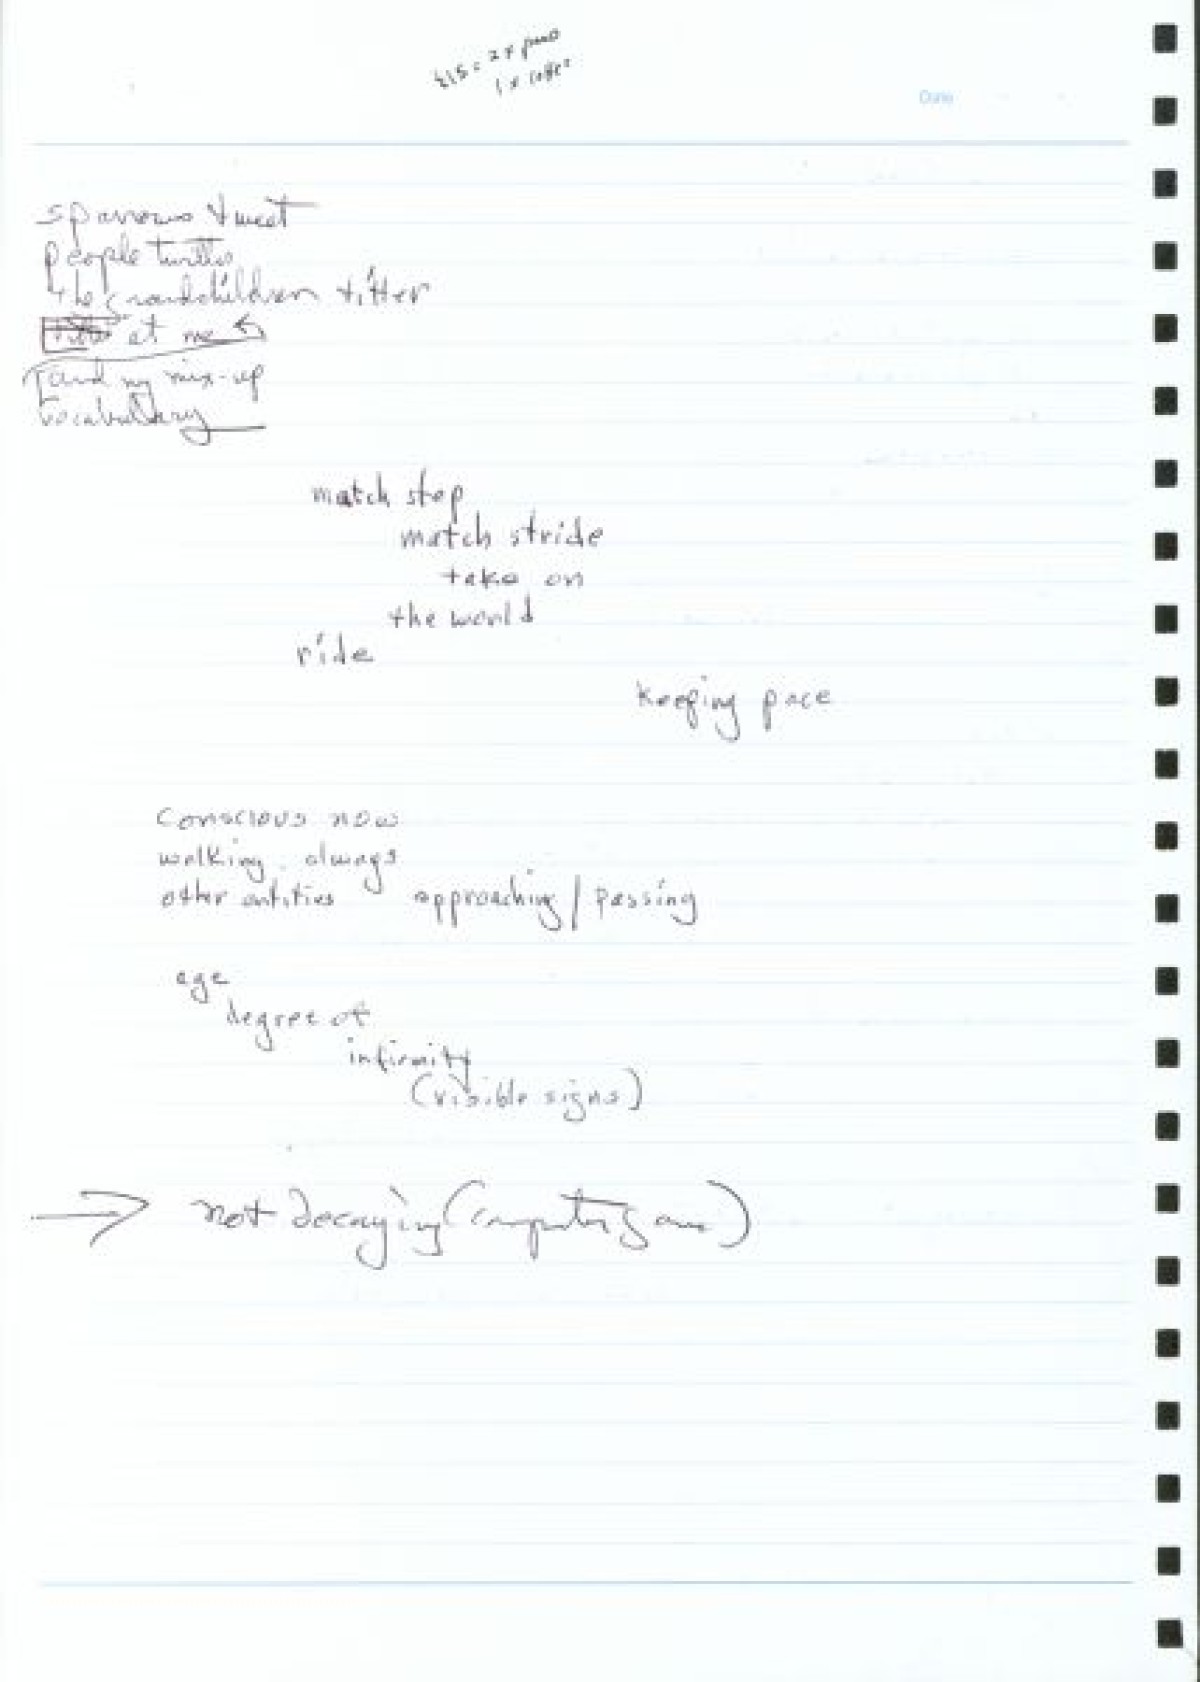 £15 = 2 x
1 x coffee
Date
sparrows tweet
people twitter
the grandchildren titter
at me
and my mix-up
vocabulary
match step
match stride
take on
the world
ride
keeping pace
conscious now
walking always
other entities approaching / passing
age
degree of
infirmity
(visible signs)
→ not decaying (computer game)